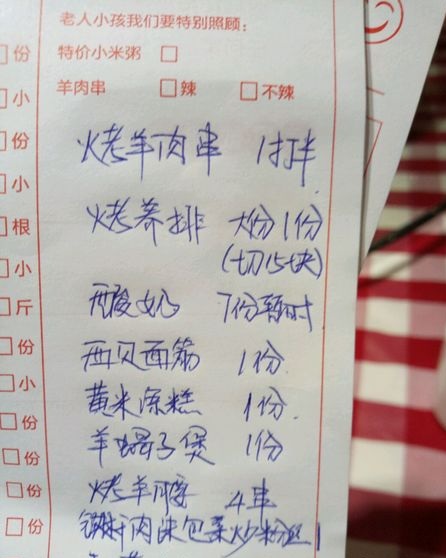 老人小孩我们要特别照顾：
份 特价小米粥
小 羊肉串 辣 不辣
份 烤羊肉串 1打半
小
根 烤养排 大份1份
小 (切15块)
斤 酸奶 7份暂时
份 西贝面筋 1份
小 黄米凉糕 1份.
份 羊蝎子煲 1份
份
份 烤羊腰 4串
份 肉末包菜炒粉丝1